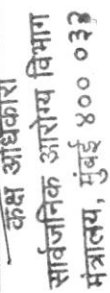 कक्ष अधिकारी
सार्वजनिक आरोग्य विभाग
मंत्रालय, मुंबई ४०० ०३२